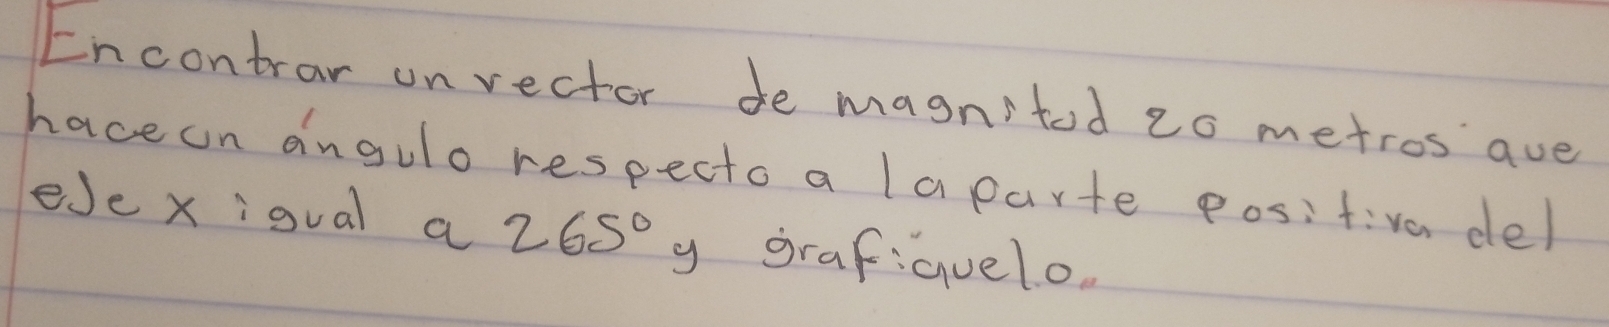 Encontrar un vector de magnitud 20 metros que
hace un ángulo respecto a la parte positiva del
eje x igual a 265° y grafiquelo.